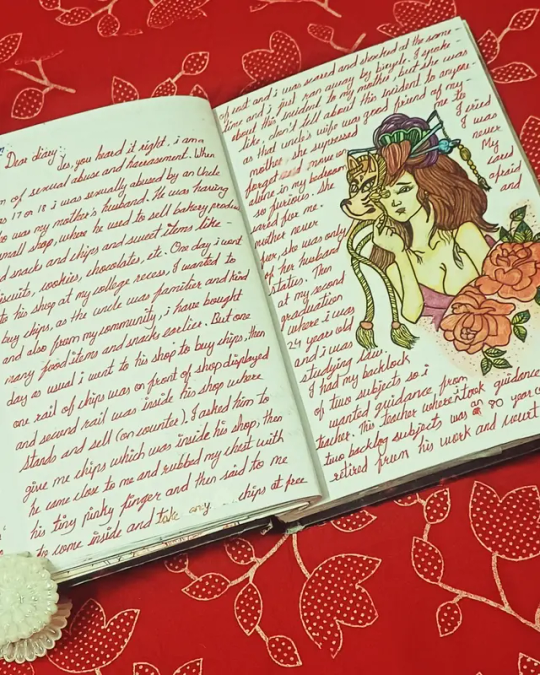 Dear diary:
Yes, you heard it right. i am a
of sexual abuse and harassement. When
17 or 18 i was sexually abused by an Uncle
who was my mother's husband. He was having
small shop, where he used to sell bakery
and snacks and chips and sweet items like -
biscuits, cookies, chocolates, etc. One day i went
to his shop at my college recess, I wanted to
buy chips, as the uncle was familier and kind
and also from my community, i have bought
many food items and snacks earlier. But one
day as usual i went to his shop to buy chips, then
one rail of chips was on front of shop displayed
and second rail was inside his shop where
stands and sell (on counter), I asked him to
give me chips which was inside his shop, then
he came close to me and rubbed my chest with
his tiny pinky finger and then said to me
to come inside and take any chips at free
of cost and i was scared and shocked at the same -
time and i just ran away by bicycle. I spoke -
about this incident to my mother, but she was
like, don't tell about this incident to anyone -
as that uncle's wife was good friend of my -
mother. she supressed me to
forget and move on I cried
alone in my bedroom I was
so furious. She never
cared for me. My
mother never cared
for, she was only afraid
of her husband and
status. Then
at my second
graduation
where i was
24 years old
and i was
studying law.
I had my backlock
of two subjects so i
wanted guidance from
teacher. This teacher where i took guidence
two backlog subjects was an 80 year
retired from his work and court